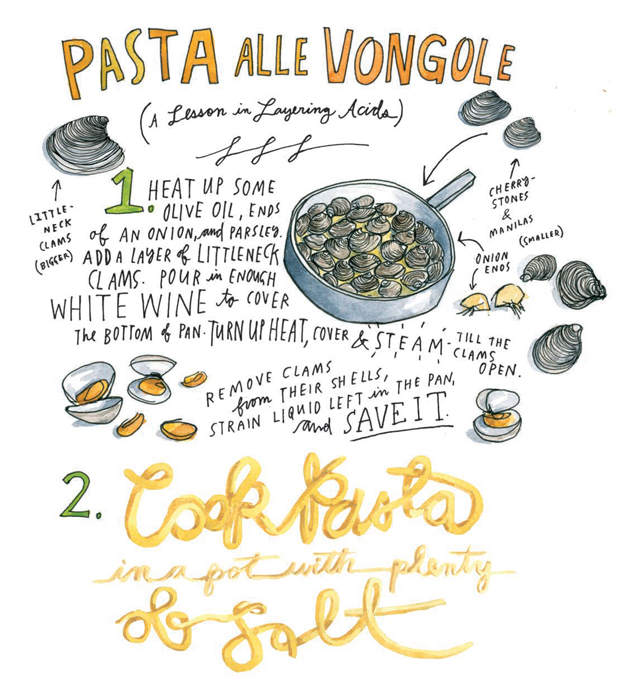 PASTA ALLE VONGOLE
(A Lesson in Layering Acids)
LITTLE-
NECK
CLAMS
(BIGGER)
1. HEAT UP SOME
OLIVE OIL, ENDS
of AN ONION, and PARSLEY.
ADD A LAYER of LITTLENECK
CLAMS. POUR in ENOUGH
WHITE WINE to COVER
THE BOTTOM of PAN. TURN UP HEAT, COVER & STEAM - TILL THE
CLAMS
OPEN.
CHERRY-
STONES
&
MANILAS
(SMALLER)
ONION
ENDS
REMOVE CLAMS
from THEIR SHELLS,
STRAIN LIQUID LEFT in THE PAN,
and SAVE IT.
2. Cook Pasta
in a pot with plenty
of Salt